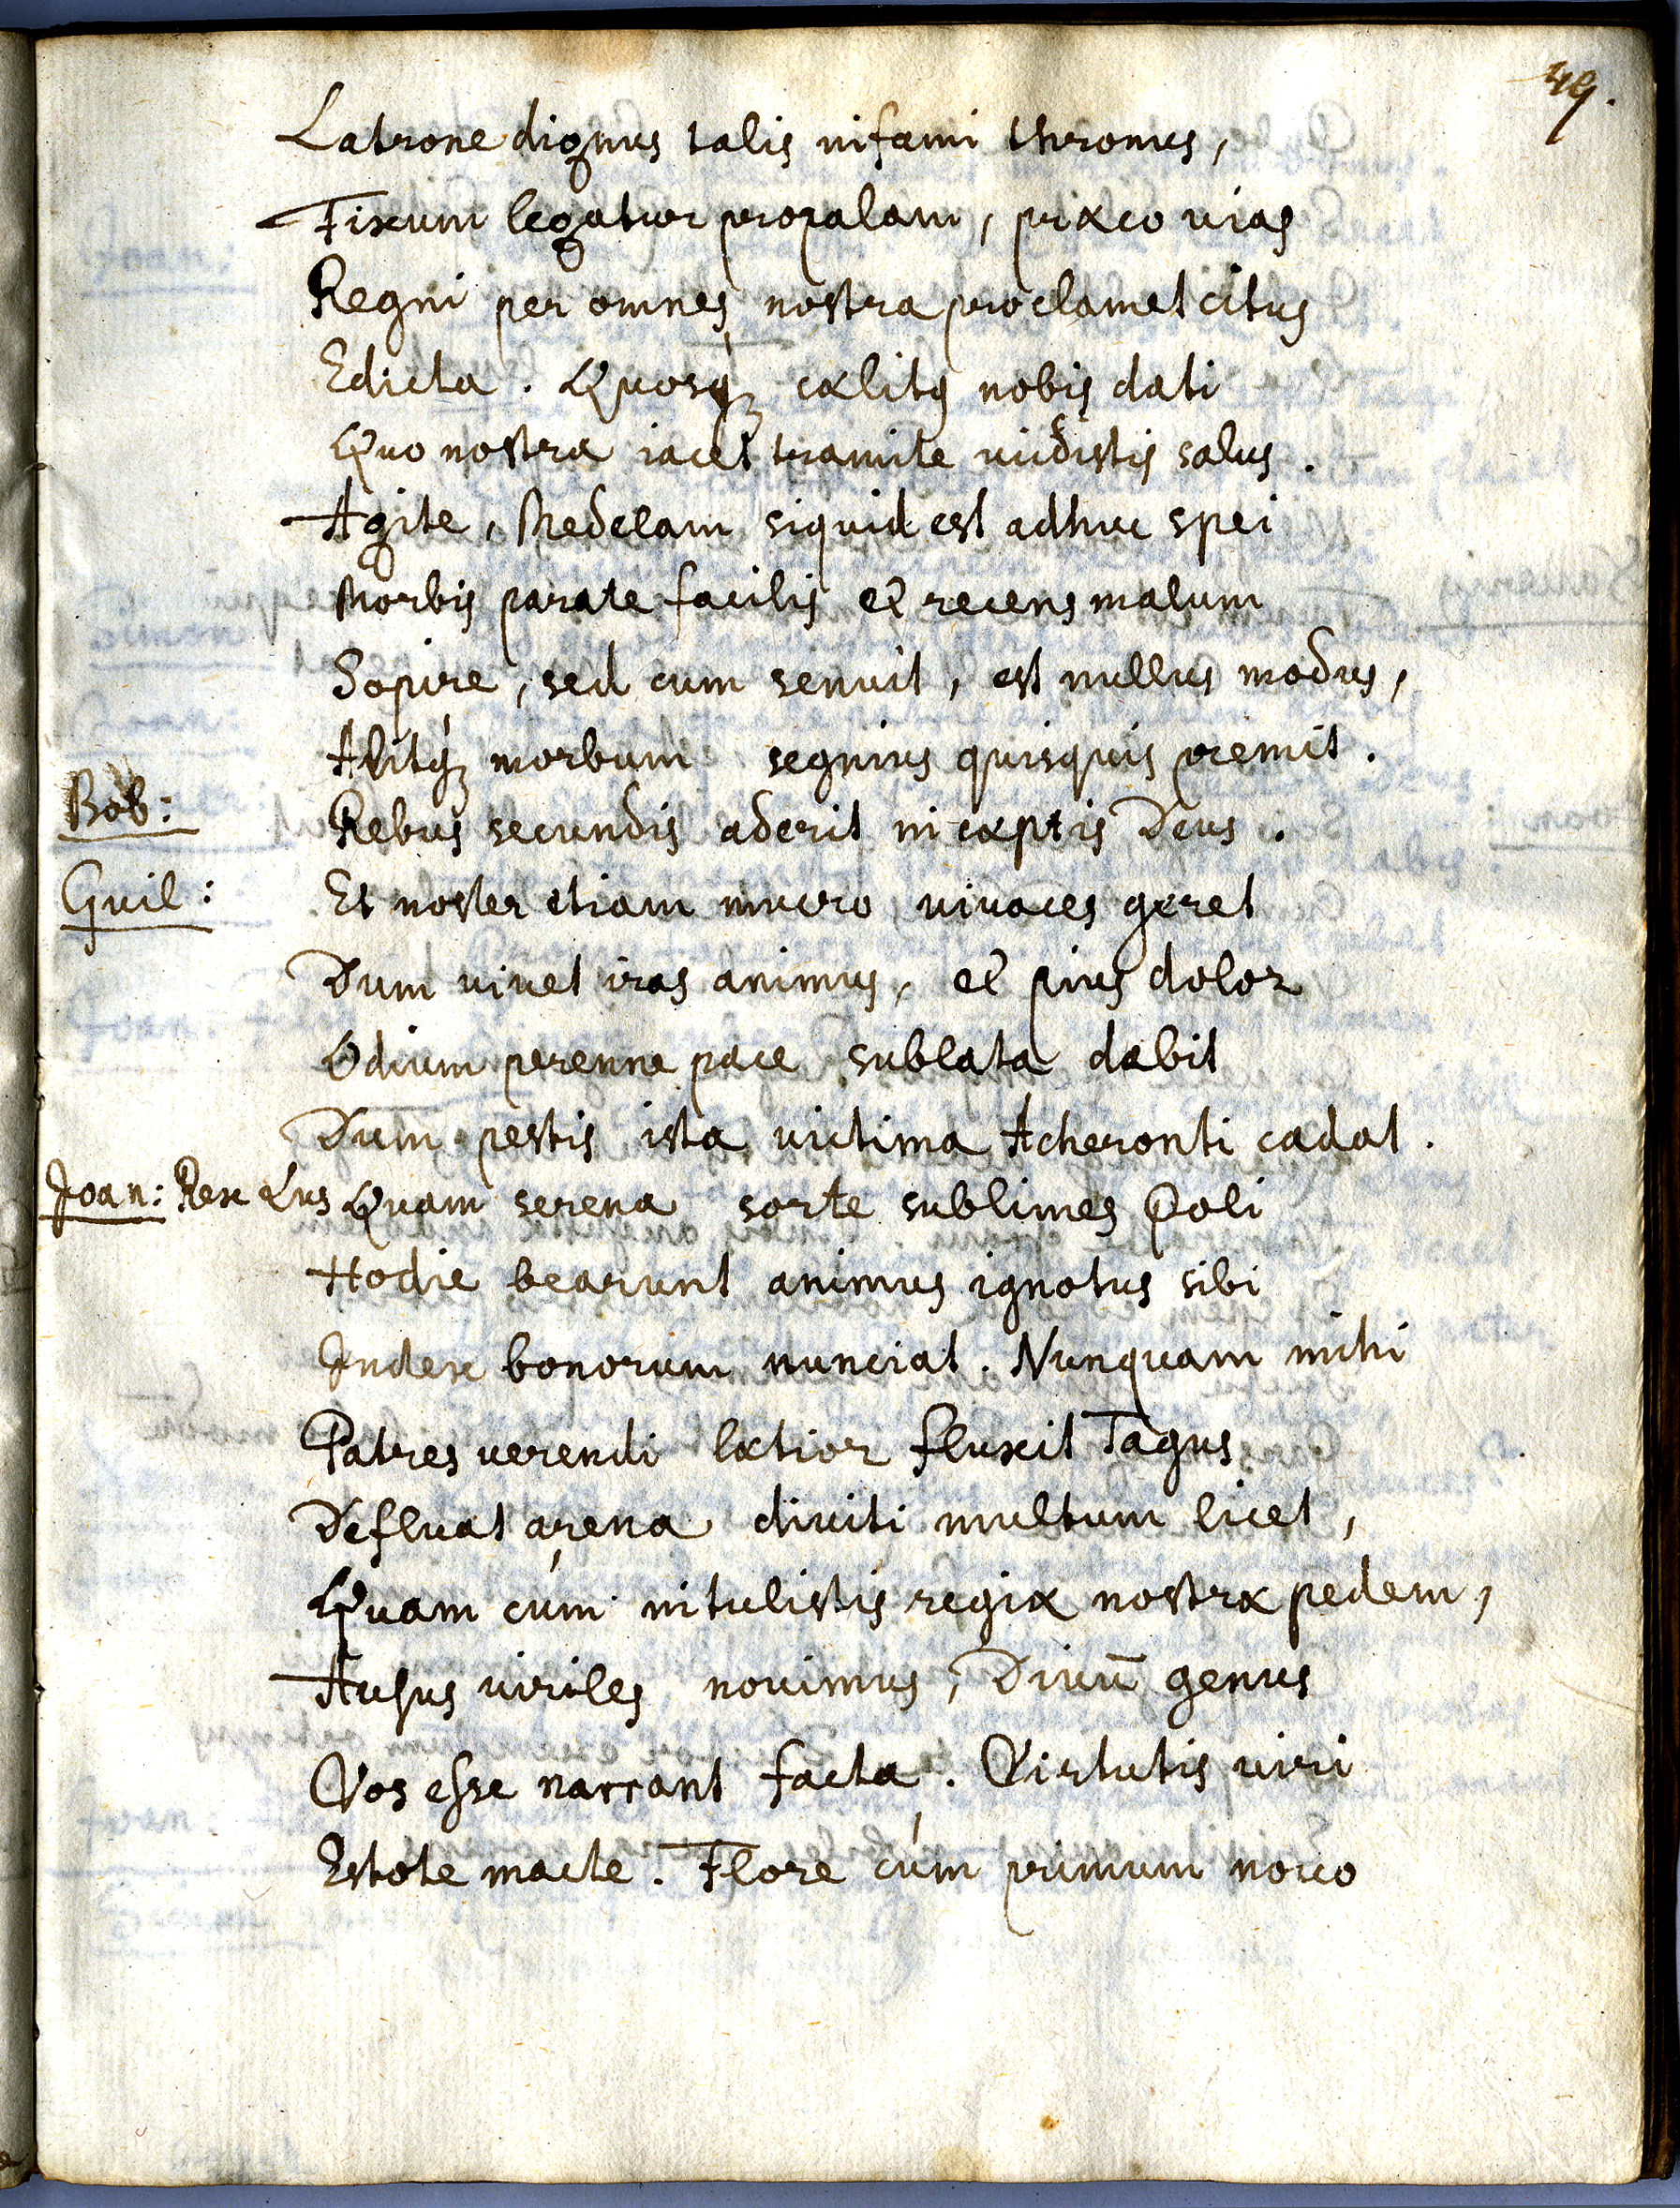 49.
Latrone dignus talis infami thronus,
Fixum legatur propalam, præco vias
Regni per omnes nostra proclamet citus
Edicta. Quosq; cælitq nobis dati
Quo nostra iacet tramite vidistis salus.
Agite, Medelam siquid est adhuc spei
Morbis parate facilis et recens malum
Sopire, sed cum senuit, est nullus modus,
Alitq; morbum segnius quisquis premit.
Bob: Rebus secundis aderit incæptis Deus.
Guil: Et noster etiam mucro vivaces geret
Dum vivet iras animus, et pius dolor
Odium perenne pace sublata dabit
Dum pestis ista victima Acheronti cadat.
Joan: Rex Lus Quam serena sorte sublimes Poli
Hodie bearunt animus ignotus sibi
Index bonorum nunciat. Nunquam mihi
Patres verendi lætior fluxit Tagus
Defluat arena diviti multum licet,
Quam cùm intulistis regiæ nostræ pedem,
Ausus viriles novimus, Divū genus
Vos esse narrant facta. Virtutis viri
Estote macte. Flore cùm primum novo